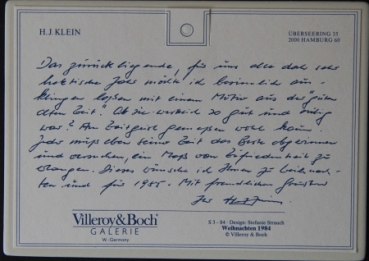 H.J. KLEIN
ÜBERSEERING 35
2000 HAMBURG 60
Das zurückliegende, für uns alle doch sehr
hektische Jahr möchte ich besinnlich aus-
klingen lassen mit einem Motiv aus der "guten
alten Zeit". Ob sie wirklich so gut und ruhig
war? Am Zeitgeist gemessen wohl kaum
Jeder muß eben seiner Zeit das Beste abgewinnen
und versuchen, ein Maß von Zufriedenheit zu
erlangen. Dieses wünsche ich Ihnen zu Weihnach-
ten und für 1985. Mit freundlichen Grüßen
Ihr
Villeroy & Boch
GALERIE
W.-Germany
Design: Stefanie
Weihnachten 1984
© Villeroy & Boch